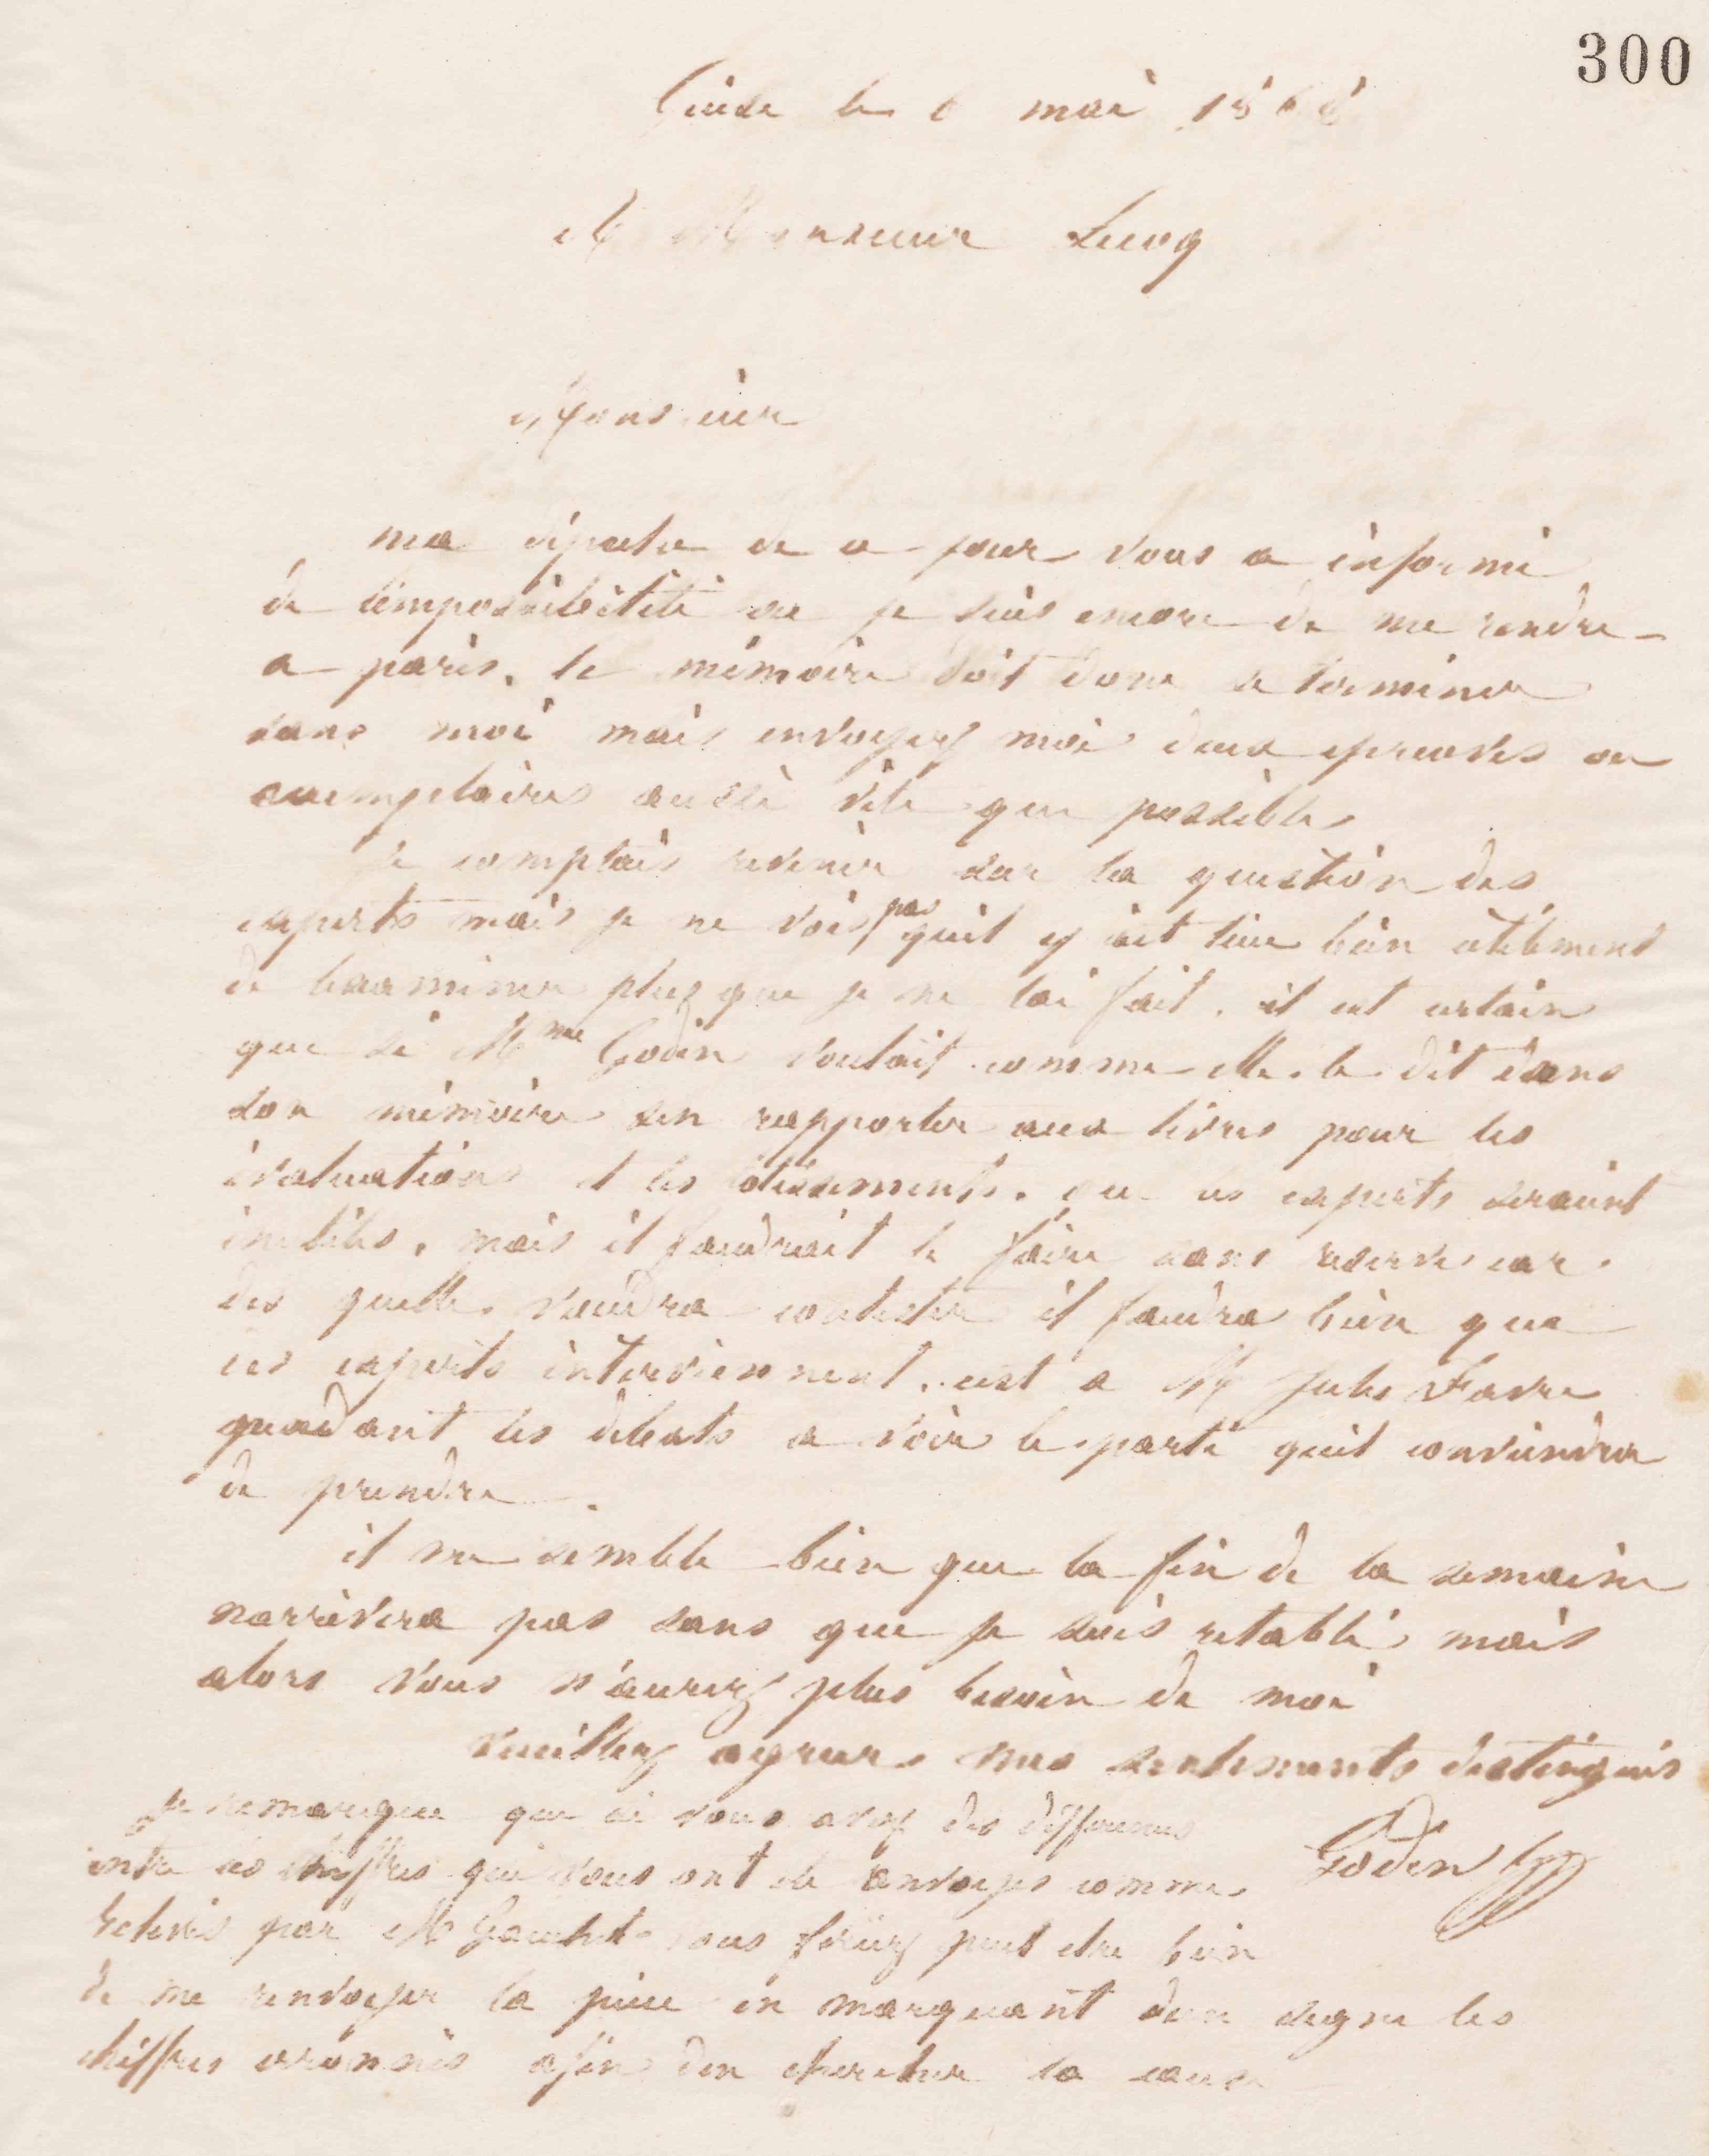 300
Guise le 6 mai 1868
A Monsieur Lecoq
Monsieur
ma dépeche de ce jour vous a informé
de limpossibilitité ou je suis encore de me rendre
a paris. le mémoire doit donc se terminer
sans moi mais envoyez moi deux epreuves ou
exemplaires aussi vite que possible
je comptais revenir sur la question des
experts mais je ne vois pas quil y ait lieu bien utilement
de lexaminer plus que je ne lai fait. il est certain
que si Mme Godin voulait comme elle le dit dans
son mémoire sen rapporter aux livres pour les
évaluations et les lotissements. que ces experts seraient
inutiles, mais il faudrait le faire sans reserve car
des quelle voudra contester il faudra bien que
ces experts interviennent. cest a M Jules Favre
quadant les debats a voir le parti quil conviendra
de prendre.
il me semble bien que la fin de la semaine
narrivera pas sans que je sois retabli mais
alors vous n'aurez plus besoin de moi
veuillez agreer mes sentiments distingués
je remarque que si vous avez des differences
entre les chiffres qui vous ont été envoyes comme
relevés par M Gauchet vous feriez peut etre bien
de me renvoyer la piece en marquant dun signe les
chiffres erronnés afin den chercher la cause
Godin